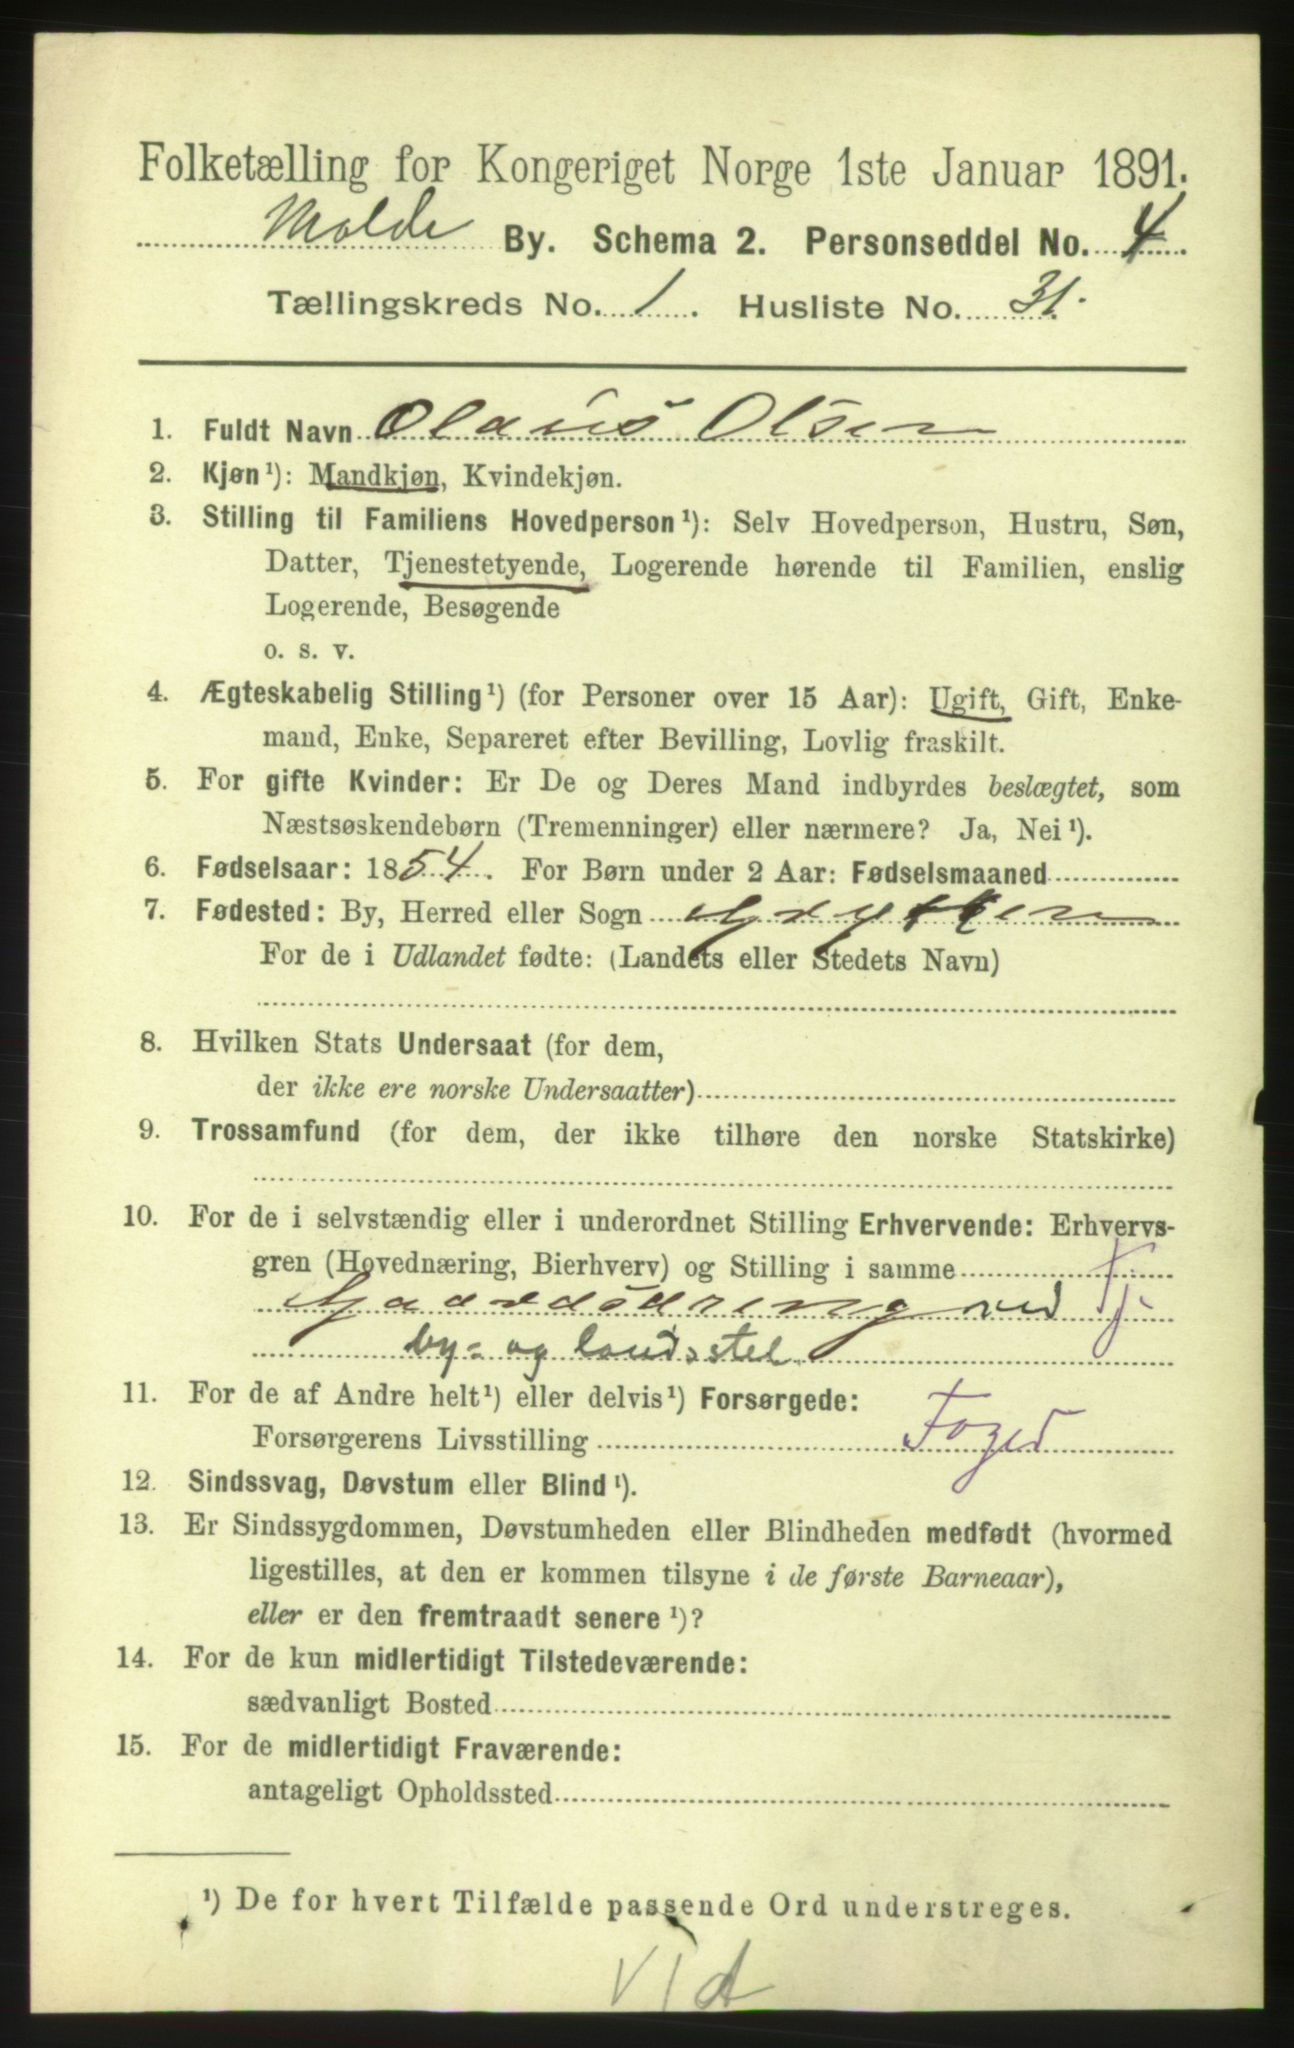 Folketælling for Kongeriget Norge 1ste Januar 1891.
Molde By. Schema 2. Personseddel No. 4
Tællingskreds No. 1. Husliste No. 31.
1. Fuldt Navn Olaus Olsen
2. Kjøn¹): Mandkjøn, Kvindekjøn.
3. Stilling til Familiens Hovedperson¹): Selv Hovedperson, Hustru, Søn,
Datter, Tjenestetyende, Logerende hørende til Familien, enslig
Logerende, Besøgende
o. s. v.
4. Ægteskabelig Stilling¹) (for Personer over 15 Aar): Ugift, Gift, Enke-
mand, Enke, Separeret efter Bevilling, Lovlig fraskilt.
5. For gifte Kvinder: Er De og Deres Mand indbyrdes beslægtet, som
Næstsøskendebørn (Tremenninger) eller nærmere? Ja, Nei¹).
6. Fødselsaar: 1854. For Børn under 2 Aar: Fødselsmaaned
7. Fødested: By, Herred eller Sogn Grytten
For de i Udlandet fødte: (Landets eller Stedets Navn)
8. Hvilken Stats Undersaat (for dem,
der ikke ere norske Undersaatter)
9. Trossamfund (for dem, der ikke tilhøre den norske Statskirke)
10. For de i selvstændig eller i underordnet Stilling Erhvervende: Erhvervs-
gren (Hovednæring, Bierhverv) og Stilling i samme
Gaardsdreng ved Tj.
by- og landsstel
11. For de af Andre helt¹) eller delvis¹) Forsørgede:
Forsørgerens Livsstilling Foged
12. Sindssvag, Døvstum eller Blind¹).
13. Er Sindssygdommen, Døvstumheden eller Blindheden medfødt (hvormed
ligestilles, at den er kommen tilsyne i de første Barneaar),
eller er den fremtraadt senere¹)?
14. For de kun midlertidigt Tilstedeværende:
sædvanligt Bosted
15. For de midlertidigt Fraværende:
antageligt Opholdssted
¹) De for hvert Tilfælde passende Ord understreges.